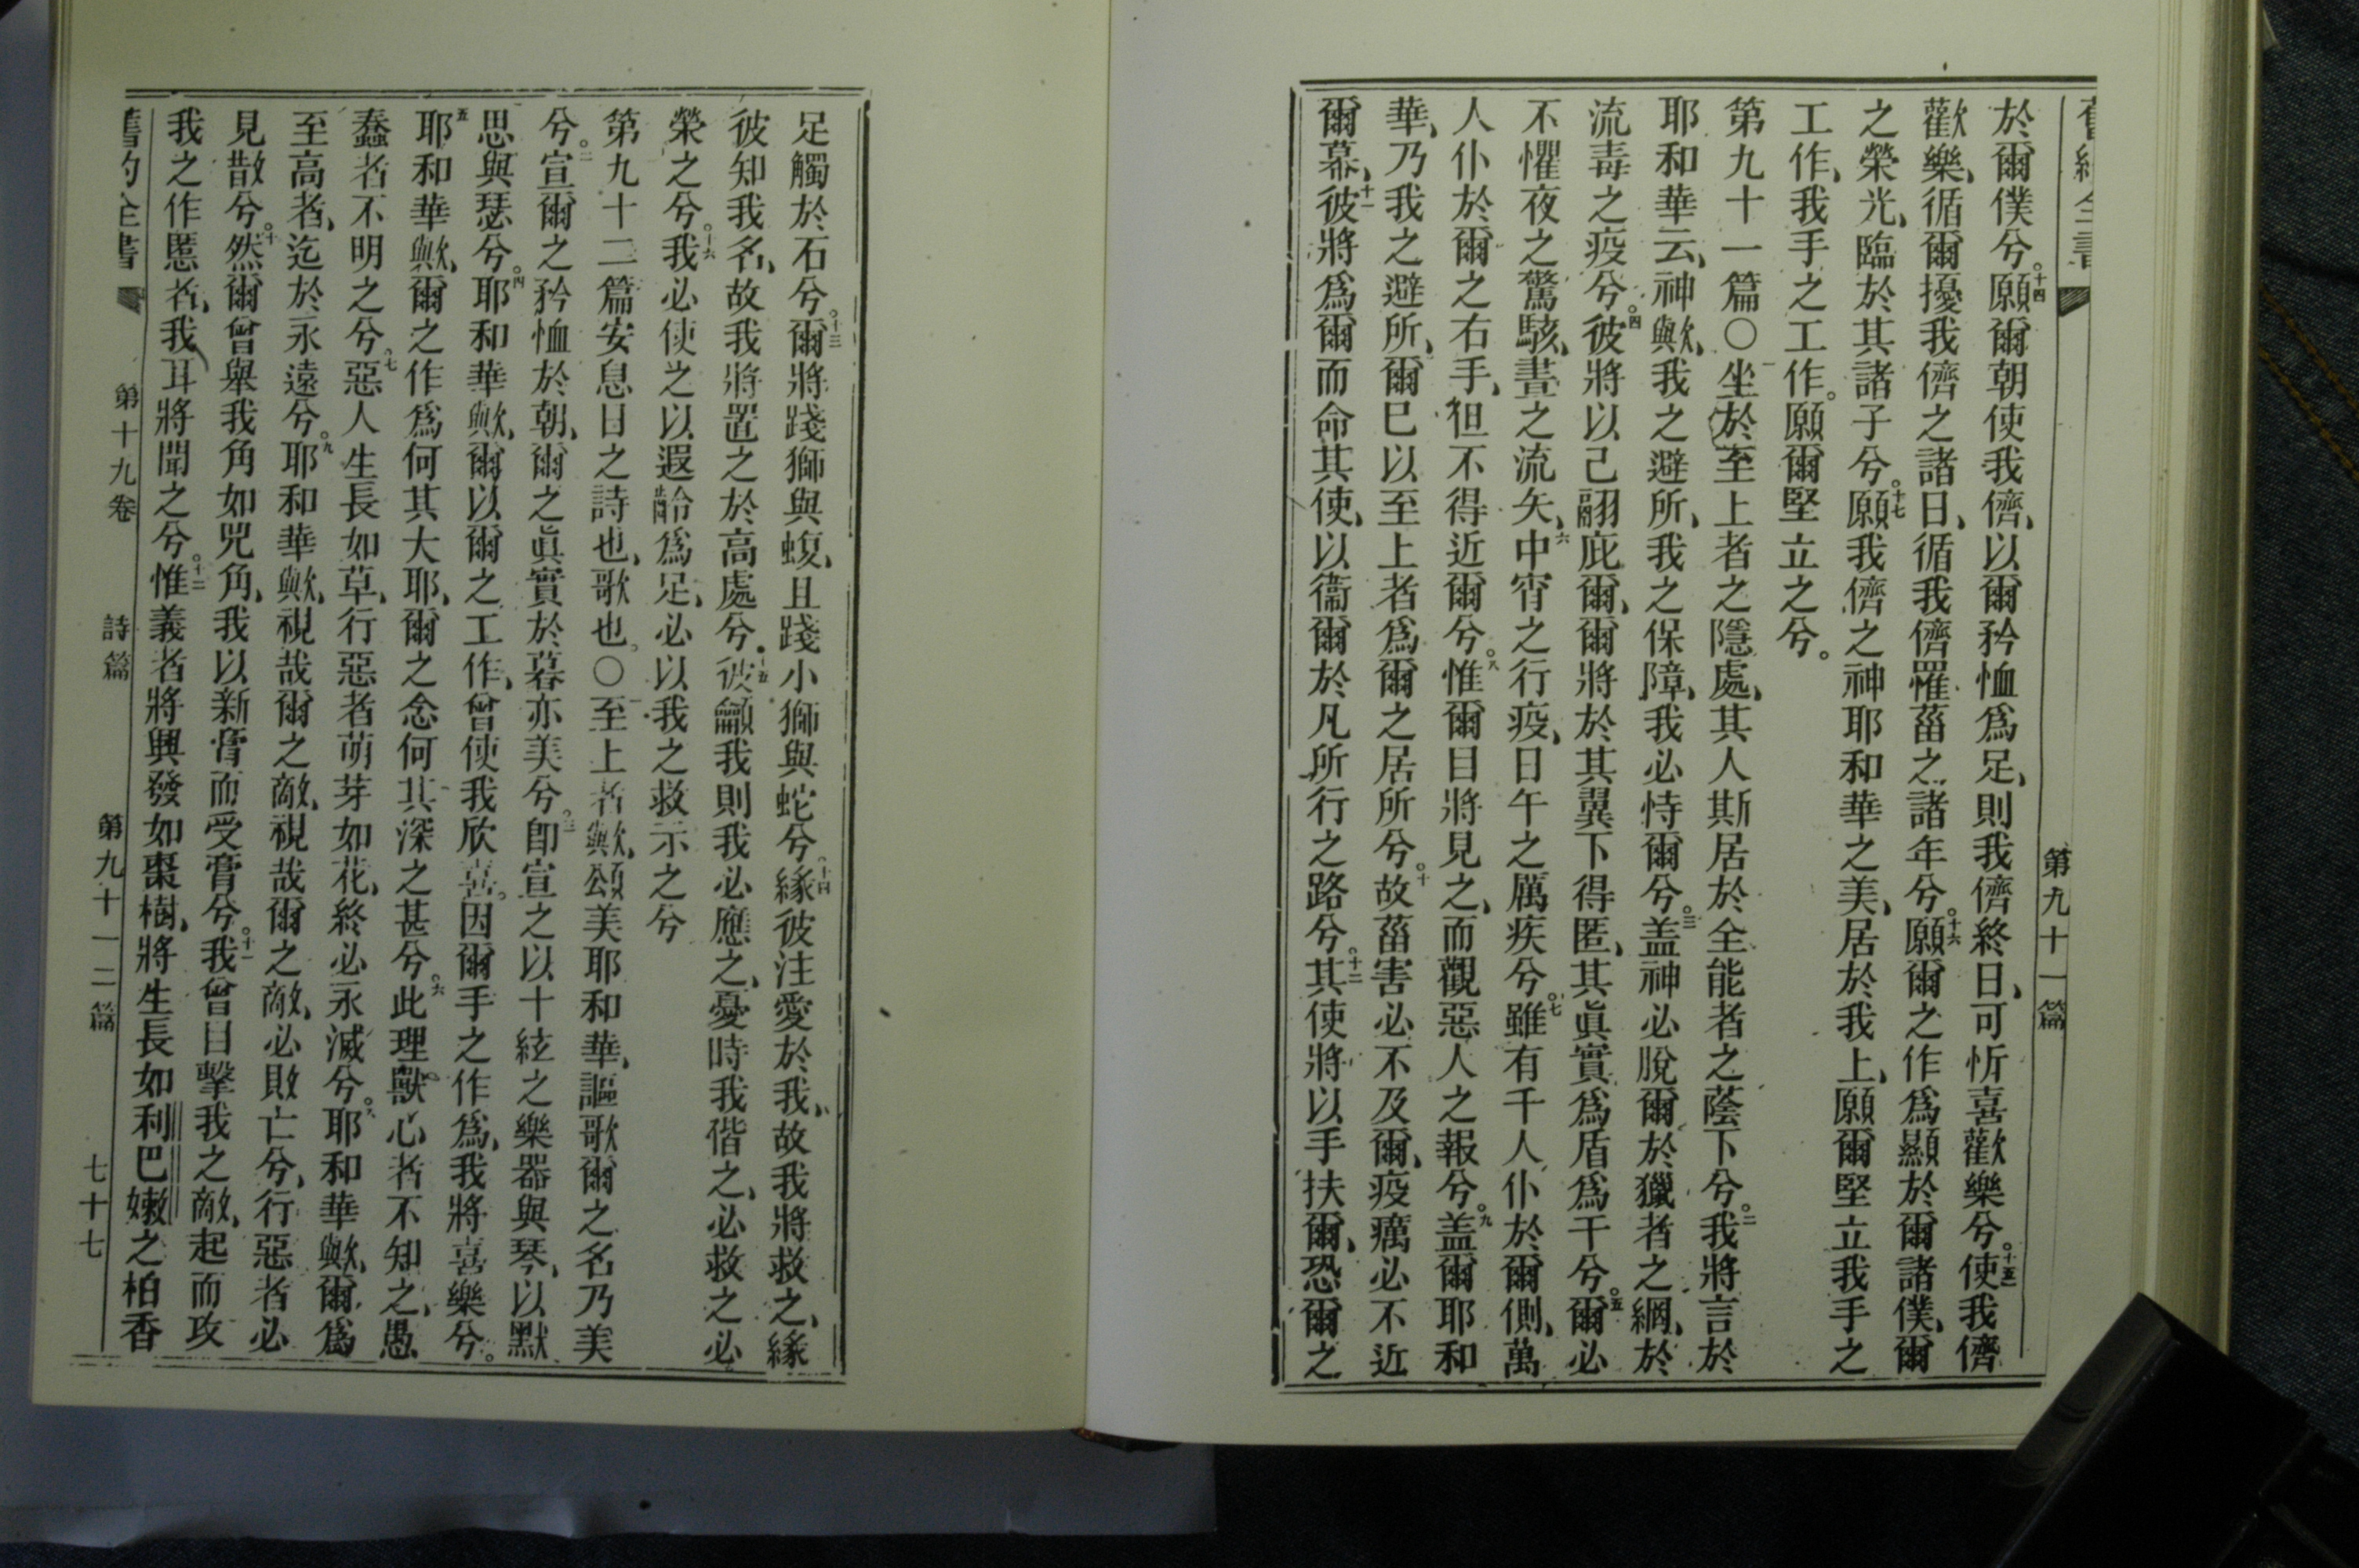 第九十一篇
於爾僕兮。十四願爾朝使我儕、以爾矜恤爲足、則我儕終日、可忻喜歡樂兮。十五使我儕
歡樂、循爾擾我儕之諸日、循我儕罹菑之諸年兮。十六願爾之作爲顯於爾諸僕、爾
之榮光、臨於其諸子兮。十七願我儕之神耶和華之美、居於我上、願爾堅立我手之
工作、我手之工作。願爾堅立之兮。
第九十一篇〇一坐於至上者之隱處、其人斯居於全能者之蔭下兮。二我將言於
耶和華云、神歟、我之避所、我之保障、我必恃爾兮。三盖神必脫爾於獵者之網、於
流毒之疫兮。四彼將以己翮庇爾、爾將於其翼下得匿、其眞實爲盾爲干兮。五爾必
不懼夜之驚駭、晝之流矢、六中宵之行疫、日午之厲疾兮。七雖有千人仆於爾側、萬
人仆於爾之右手、但不得近爾兮。八惟爾目將見之、而觀惡人之報兮。九盖爾耶和
華、乃我之避所、爾巳以至上者爲爾之居所兮。十故菑害必不及爾、疫癘必不近
爾幕、十一彼將爲爾而命其使、以衞爾於凡所行之路兮。十二其使將以手扶爾、恐爾之
足觸於石兮。十三爾將踐獅與蝮、且踐小獅與蛇兮。十四緣彼注愛於我、故我將救之、緣
彼知我名、故我將置之於高處兮。十五彼籲我則我必應之、憂時我偕之、必救之必
榮之兮。十六我必使之以遐齡爲足、必以我之救示之兮
第九十二篇安息日之詩也、歌也。〇一至上者歟、頌美耶和華、謳歌爾之名乃美
兮。二宣爾之矜恤於朝、爾之眞實於暮亦美兮。三卽宣之以十絃之樂器與琴、以默
思與瑟兮。四耶和華歟、爾以爾之工作、曾使我欣喜。因爾手之作爲、我將喜樂兮。
五耶和華歟、爾之作爲何其大耶、爾之念何其深之甚兮。六此理獸心者不知之、愚
蠢者不明之兮。七惡人生長如草、行惡者萌芽如花、終必永滅兮。八耶和華歟、爾爲
至高者、迄於永遠兮。九耶和華歟、視哉爾之敵、視哉爾之敵、必敗亡兮、行惡者必
見散兮。十然爾曾舉我角如兕角、我以新膏而受膏兮。十一我曾目擊我之敵、起而攻
我之作慝者、我耳將聞之兮。十二惟義者將興發如棗樹、將生長如利巴嫩之柏香
第十九卷 詩篇 第九十一二篇 七十七